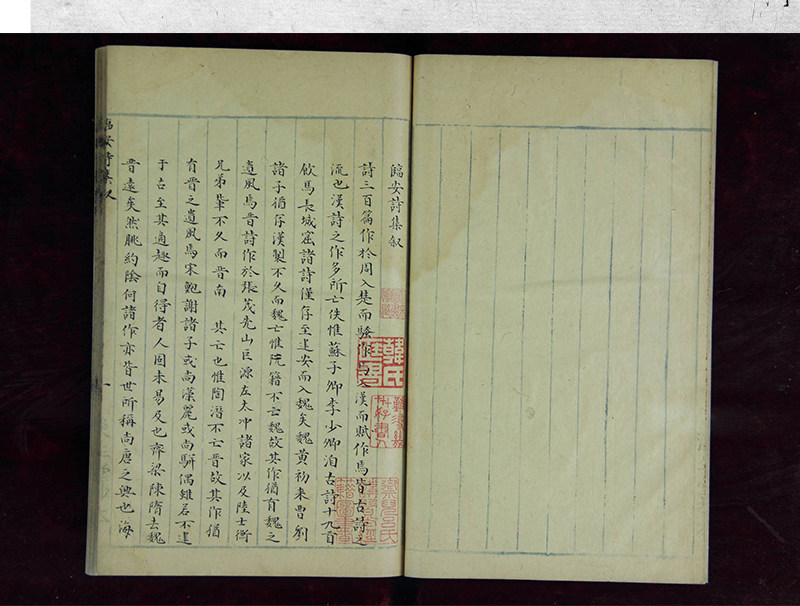 臨安詩集叙
詩三百篇作於周入楚而騷作入漢而賦作焉皆古詩之
流也漢詩之作多所亡佚惟蘇子卿李少卿洎古詩十九首
飲馬長城窟諸詩僅存至建安而入魏矣魏黃初來曹劉
諸子猶存漢製不久而魏亡惟阮籍不亡魏故其作猶有魏之
遺風焉晉詩作於張茂先山巨源左太冲諸家以及陸士衡
兄弟輩不久而晉南 其亡也惟陶潛不亡晉故其作猶
有晉之遺風焉宋鮑謝諸子或尚藻麗或尚駢偶雖若不逮
于古至其適趣而自得者人固未易及也齊梁陳隋去魏
晉遠矣然朓約陰何諸作亦昔世所稱尚唐之興也海
臨安詩集叙
一